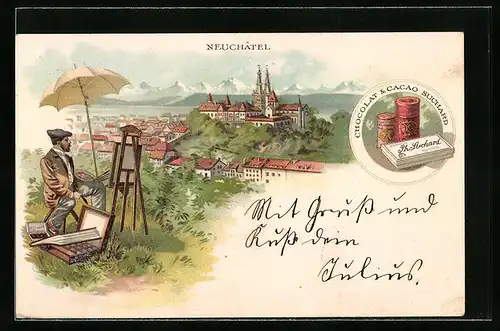 NEUCHÂTEL
CHOCOLAT & CACAO SUCHARD
Ph. Suchard
Mit Gruß und
Kuß dein
Julius.